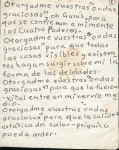 Otorgadme vuestras ondas
graciosas oh Gurus para
que se confirmen a mi mente
los Cuatro Poderes.
Otorgadme vuestras ondas
graciosas para que todas
las cosas visibles y existen
tes hagan surgir sobre mi la
forma de las deidades
Otorgadme vuestras ondas
graciosas para que la fuerza
vital entre en mi nervio me
dio.
Otorgadme vuestras ondas
graciosas para que la calida
extatica de calor-psiquico
pueda arder.